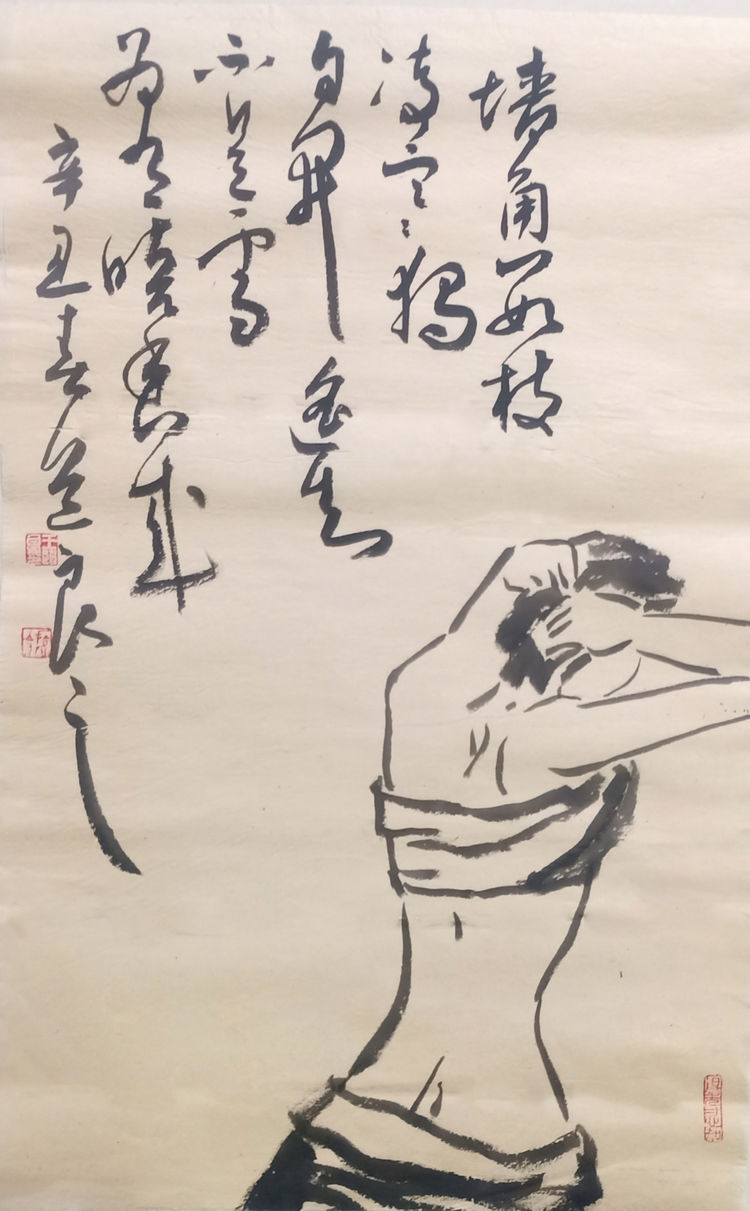 墙角数枝
凌寒獨
自開遥知
不是雪
为有暗香来
辛丑春道良